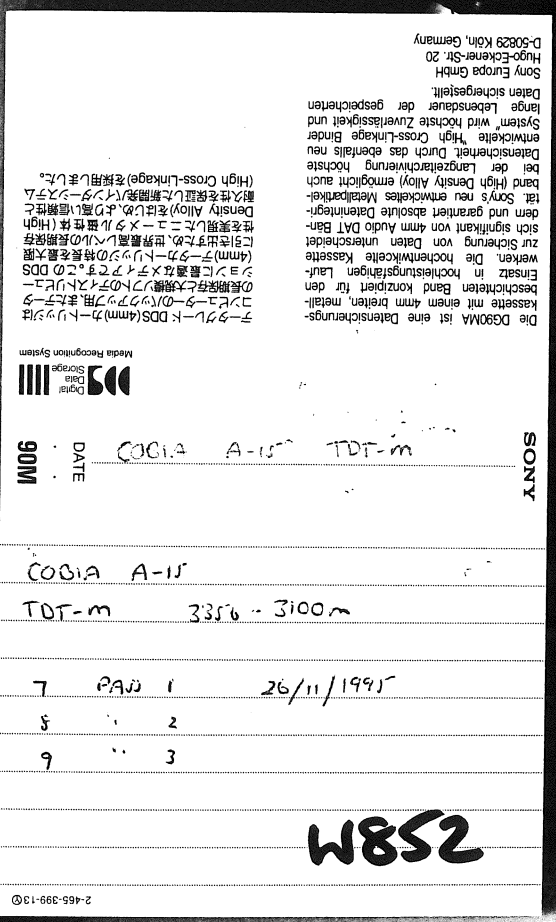 D-50829 Köln, Germany
Hugo-Eckener-Str. 20
Sony Europa GmbH
Die DG90MA ist eine Datensicherungs-
kassette mit einem 4mm breiten, metall-
beschichteten Band konzipiert für den
Einsatz in hochleistungsfähigen Lauf-
werken. Die hochentwikcelte Kassette
zur Sicherung von Daten unterscheidet
sich signifikant von 4mm Audio DAT Bän-
dem und garantiert absolute Datenintegri-
tät. Sony's neu entwickeltes Metallpartikel-
band (High Density Alloy) ermöglicht auch
bei der Langzeitarchivierung höchste
Datensicherheit. Durch das ebenfalls neu
entwickelte "High Cross-Linkage Binder
System" wird höchste Zuverlässigkeit und
lange Lebensdauer der gespeicherten
Daten sichergestellt.
データグレード DDS(4mm)カートリッジは
コンピューターのバックアップ用、またデータ
の長期保存と大規模ソフトのディストリビュー
ションに最適なメディアです。この DDS
(4mm)データカートリッジの特長を最大限
に引き出すため、世界最高レベルの長期保存
性を実現したニューメタル磁性体(High
Density Alloy)をはじめ、より高い信頼性と
耐久性を保証した新開発バインダーシステム
(High Cross-Linkage)を採用しました。
DDS
Digital
Data
Storage
Media Recognition System
SONY
90M
DATE
COBIA A-15 TDT-M
COBIA A-15
TDT-M 3350 - 3100m
7 PASS 1 26/11/1995
8 " 2
9 " 3
W852
2-465-399-13